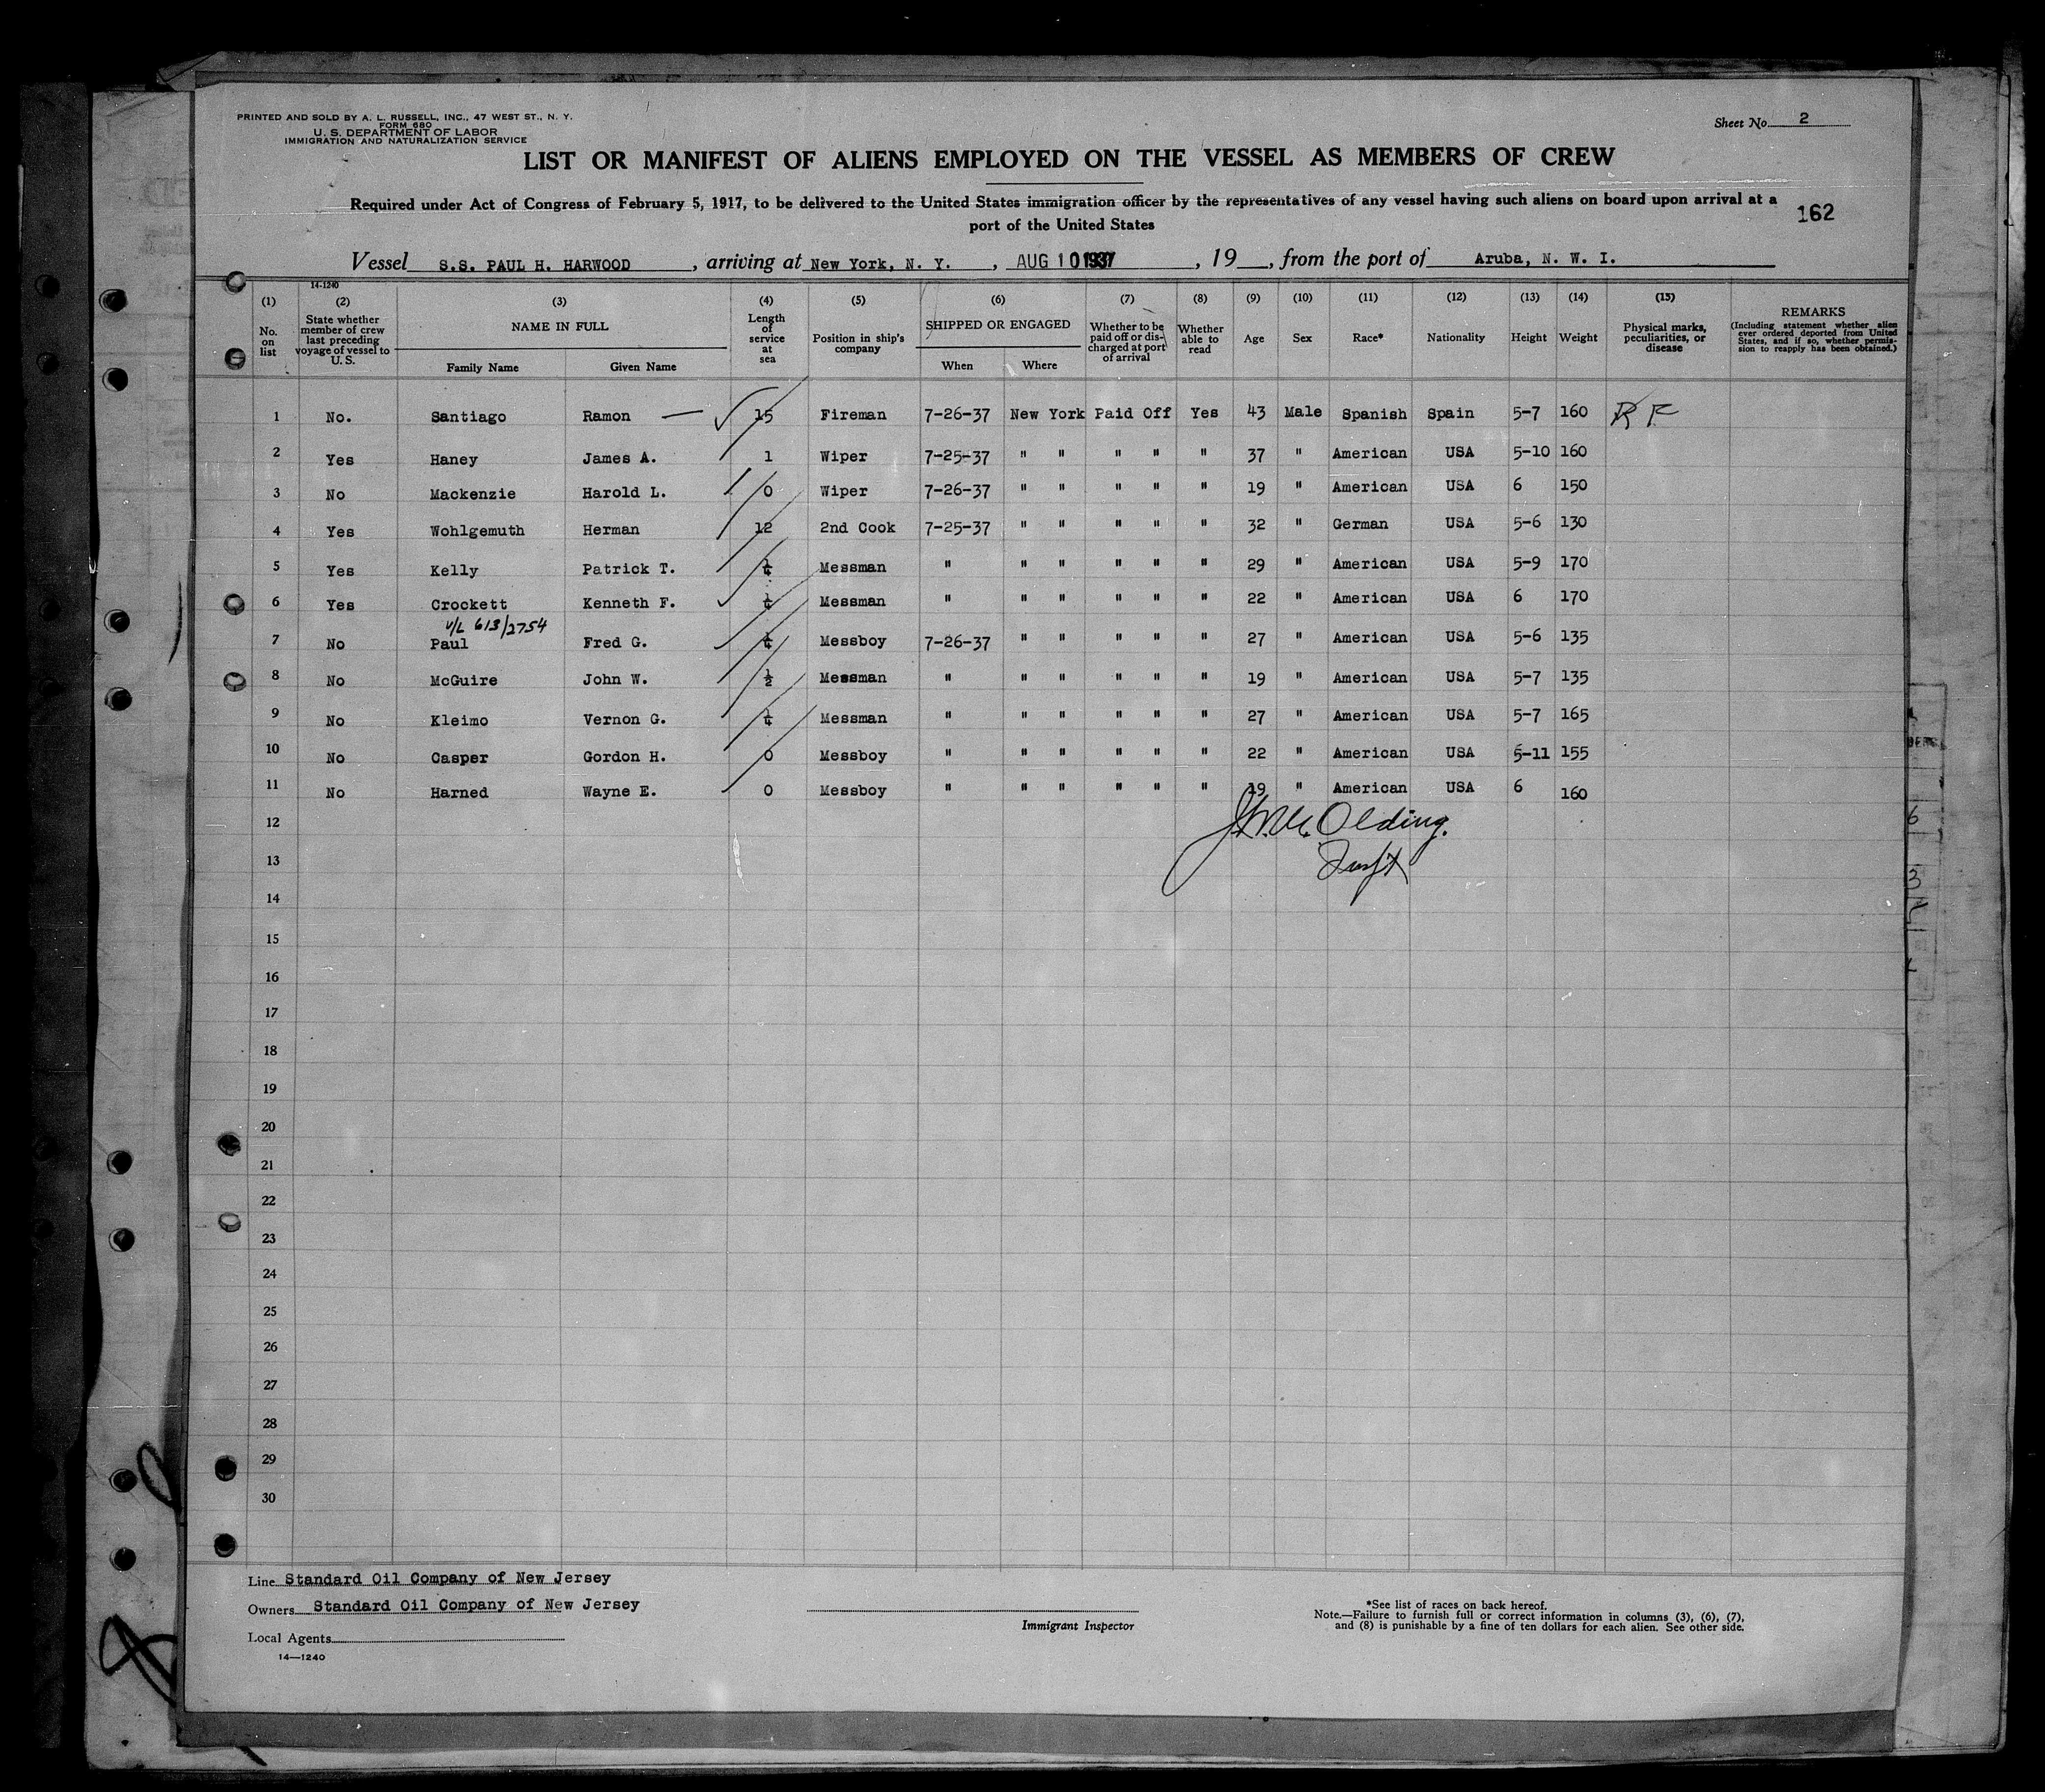 PRINTED AND SOLD BY A. L. RUSSELL, INC., 47 WEST ST., N. Y.
FORM 680
U. S. DEPARTMENT OF LABOR
IMMIGRATION AND NATURALIZATION SERVICE
Sheet No. 2
LIST OR MANIFEST OF ALIENS EMPLOYED ON THE VESSEL AS MEMBERS OF CREW
Required under Act of Congress of February 5, 1917, to be delivered to the United States immigration officer by the representatives of any vessel having such aliens on board upon arrival at a
port of the United States
162
Vessel S.S. PAUL H. HARWOOD, arriving at New York, N. Y., AUG 10 1937, 19__, from the port of Aruba, N. W. I.
14-1240
(1) (2) (3) (4) (5) (6) (7) (8) (9) (10) (11) (12) (13) (14) (15)
No. on list
State whether member of crew last preceding voyage of vessel to U. S.
NAME IN FULL
Family Name Given Name
Length of service at sea
Position in ship's company
SHIPPED OR ENGAGED
When Where
Whether to be paid off or discharged at port of arrival
Whether able to read
Age
Sex
Race*
Nationality
Height
Weight
Physical marks, peculiarities, or disease
REMARKS
(Including statement whether alien ever ordered deported from United States, and if so, whether permission to reapply has been obtained.)
1 No. Santiago Ramon — 15 Fireman 7-26-37 New York Paid Off Yes 43 Male Spanish Spain 5-7 160 R F
2 Yes Haney James A. 1 Wiper 7-25-37 " " " " " 37 " American USA 5-10 160
3 No Mackenzie Harold L. 0 Wiper 7-26-37 " " " " " 19 " American USA 6 150
4 Yes Wohlgemuth Herman 12 2nd Cook 7-25-37 " " " " " 32 " German USA 5-6 130
5 Yes Kelly Patrick T. 1/4 Messman " " " " " " 29 " American USA 5-9 170
6 Yes Crockett Kenneth F. 1/4 Messman " " " " " " 22 " American USA 6 170
V/L 613/2754
7 No Paul Fred G. 1/4 Messboy 7-26-37 " " " " " 27 " American USA 5-6 135
8 No McGuire John W. 1/2 Messman " " " " " " 19 " American USA 5-7 135
9 No Kleimo Vernon G. 1/4 Messman " " " " " " 27 " American USA 5-7 165
10 No Casper Gordon H. 0 Messboy " " " " " " 22 " American USA 5-11 155
11 No Harned Wayne E. 0 Messboy " " " " " " 19 " American USA 6 160
12
13
14
15
16
17
18
19
20
21
22
23
24
25
26
27
28
29
30
Line Standard Oil Company of New Jersey
Owners Standard Oil Company of New Jersey
Local Agents
14—1240
Immigrant Inspector
*See list of races on back hereof.
Note.—Failure to furnish full or correct information in columns (3), (6), (7),
and (8) is punishable by a fine of ten dollars for each alien. See other side.